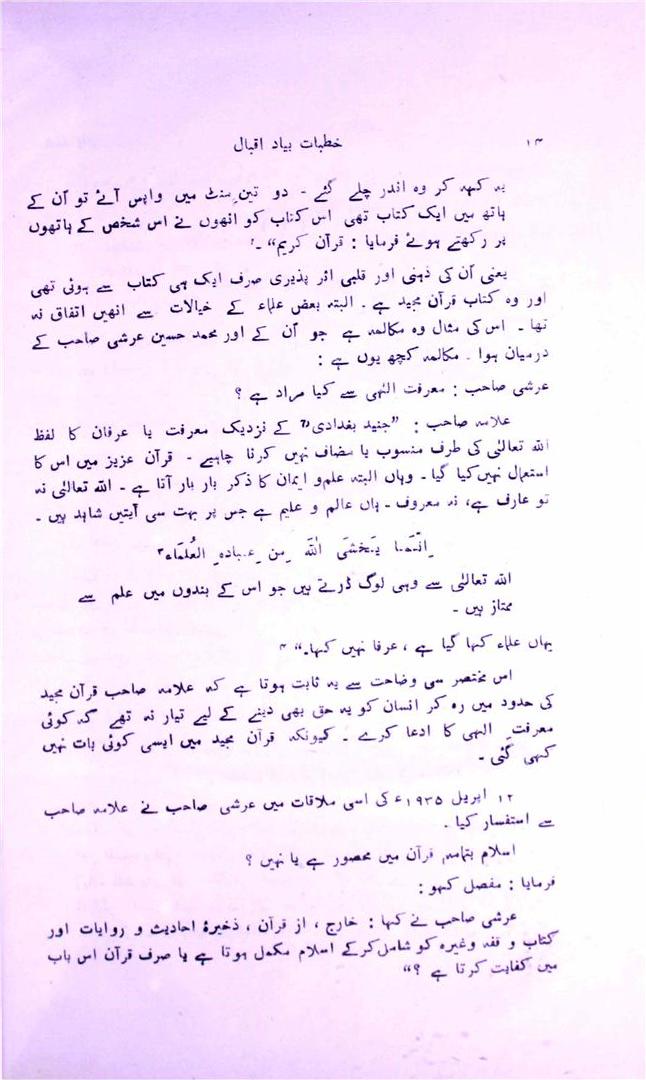 ۱۴
خطبات بیاد اقبال
یہ کہہ کر وہ اندر چلے گئے ۔ دو تین منٹ میں واپس آئے تو اُن کے
ہاتھ میں ایک کتاب تھی اس کتاب کو انھوں نے اس شخص کے ہاتھوں
پر رکھتے ہوئے فرمایا : قرآن کریم“ ۔
یعنی اُن کی ذہنی اور قلبی اثر پذیری صرف ایک ہی کتاب سے ہوئی تھی
اور وہ کتاب قرآن مجید ہے ۔ البتہ بعض علماء کے خیالات سے انھیں اتفاق نہ
تھا ۔ اس کی مثال وہ مکالمہ ہے جو اُن کے اور محمد حسین عرشی صاحب کے
درمیان ہوا ۔ مکالمہ کچھ یوں ہے :
عرشی صاحب : معرفت الٰہی سے کیا مراد ہے ؟
علامہ صاحب : ”جنید بغدادیؒ کے نزدیک معرفت یا عرفان کا لفظ
اللہ تعالیٰ کی طرف منسوب یا مضاف نہیں کرنا چاہیے ۔ قرآن عزیز میں اس کا
استعمال نہیں کیا گیا ۔ وہاں البتہ علم و ایمان کا ذکر بار بار آتا ہے ۔ اللہ تعالیٰ نہ
تو عارف ہے ، نہ معروف ۔ ہاں عالم و علیم ہے جس پر بہت سی آیتیں شاہد ہیں ۔
اِنَّمَا یَخشَی اللہَ مِن عِبادِہِ العُلَمَاء۳
اللہ تعالیٰ سے وہی لوگ ڈرتے ہیں جو اس کے بندوں میں علم سے
ممتاز ہیں ۔
یہاں علماء کہا گیا ہے ، عرفا نہیں کہا۔“ ۴
اس مختصر سی وضاحت سے یہ ثابت ہوتا ہے کہ علامہ صاحب قرآن مجید
کی حدود میں رہ کر انسان کو یہ حق بھی دینے کے لیے تیار نہ تھے کہ کوئی
معرفتِ الٰہی کا ادعا کرے ۔ کیونکہ قرآن مجید میں ایسی کوئی بات نہیں
کہی گئی ۔
۱۲ اپریل ۱۹۳۵ء کی اسی ملاقات میں عرشی صاحب نے علامہ صاحب
سے استفسار کیا ۔
اسلام بتمامہٖ قرآن میں محصور ہے یا نہیں ؟
فرمایا : مفصل کہو :
عرشی صاحب نے کہا : خارج ، از قرآن ، ذخیرۂ احادیث و روایات اور
کتاب و فقہ وغیرہ کو شامل کرکے اسلام مکمل ہوتا ہے یا صرف قرآن اس باب
میں کفایت کرتا ہے ؟“